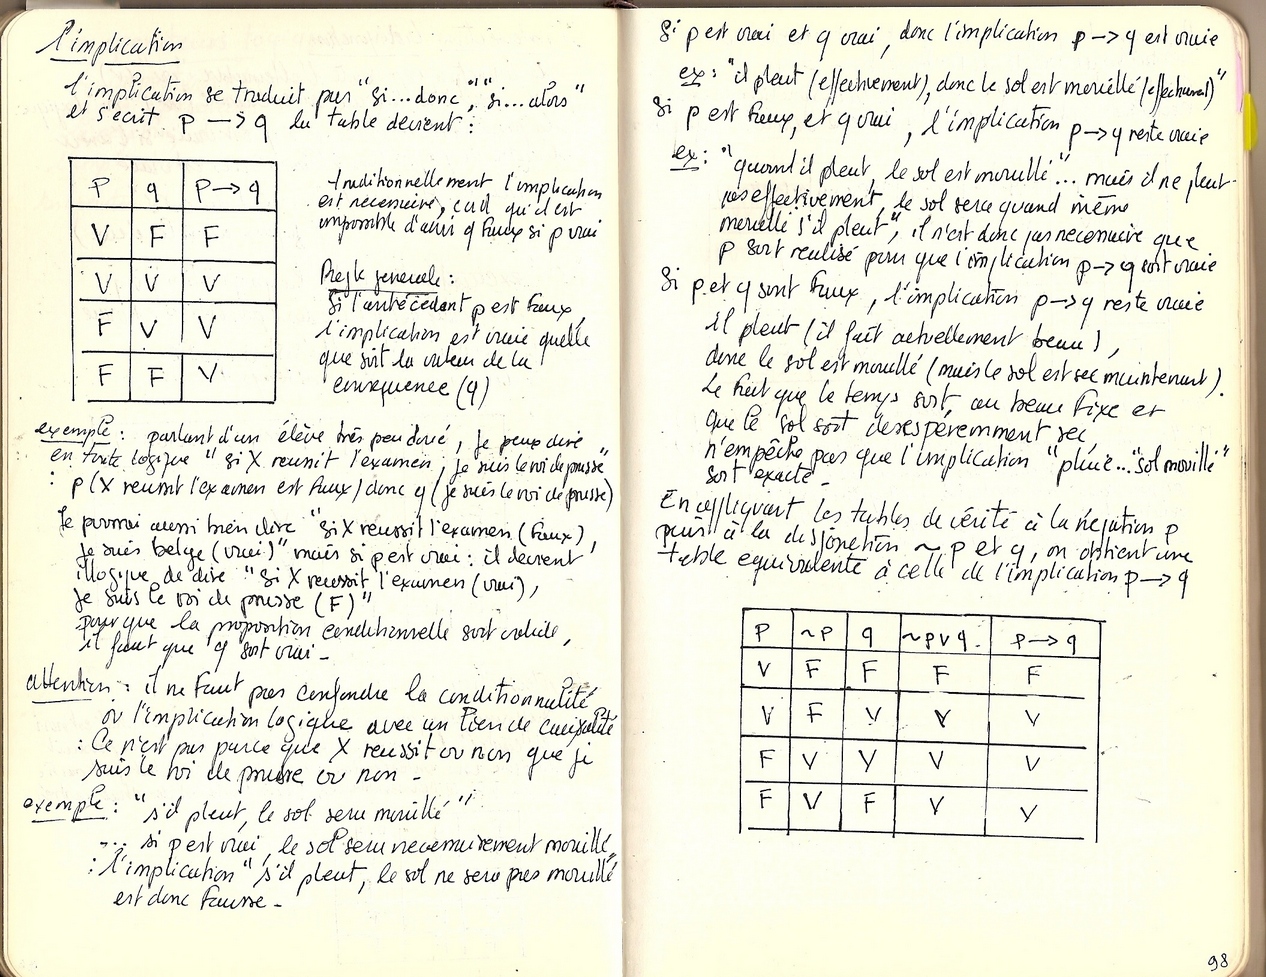 l'implication
l'implication se traduit par "si...donc", "si...alors"
et s'écrit p → q la table devient :
p q p → q
V F F
V V V
F V V
F F V
traditionnellement l'implication
est necessaire, càd qu'il est
impossible d'avoir q faux si p vrai
Regle generale :
si l'antécédant p est faux,
l'implication est vraie quelle
que soit la valeur de la
consequence (q)
exemple : parlant d'un élève très peu doué, je peux dire
en toute logique "si X reussit l'examen, je suis le roi de prusse"
: p (X reussit l'examen est faux) donc q (je suis le roi de prusse)
Je pourrai aussi bien dire "si X réussit l'examen (faux),
je suis belge (vrai)" mais si p est vrai : il devient
illogique de dire "si X reussit l'examen (vrai),
je suis le roi de prusse (F)"
pour que la proposition conditionnelle soit valide,
il faut que q soit vrai -
attention : il ne faut pas confondre la conditionnalité
ou l'implication logique avec un lien de causalité
: Ce n'est pas parce que X reussit ou non que je
suis le roi de prusse ou non -
exemple : "s'il pleut, le sol sera mouillé"
... si p est vrai, le sol sera necessairement mouillé
: l'implication "s'il pleut, le sol ne sera pas mouillé
est donc fausse -
Si p est vrai et q vrai, donc l'implication p → q est vraie
ex : "il pleut (effectivement), donc le sol est mouillé (effectivement)"
Si p est faux, et q vrai, l'implication p → q reste vraie
ex : "quand il pleut, le sol est mouillé"... mais il ne pleut
pas effectivement, le sol sera quand même
mouillé s'il pleut", il n'est donc pas necessaire que
p soit realisé pour que l'implication p → q soit vraie
Si p et q sont faux, l'implication p → q reste vraie
il pleut (il fait actuellement beau),
donc le sol est mouillé (mais le sol est sec maintenant).
Le fait que le temps soit au beau fixe et
que le sol soit desespéremment sec,
n'empêche pas que l'implication "pluie..."sol mouillé"
soit exacte -
En appliquant les tables de vérité à la négation p
puis à la disjonction ~p et q, on obtient une
table equivalente à celle de l'implication p → q
p ~p q ~p v q. p → q
V F F F F
V F V V V
F V V V V
F V F V V
98